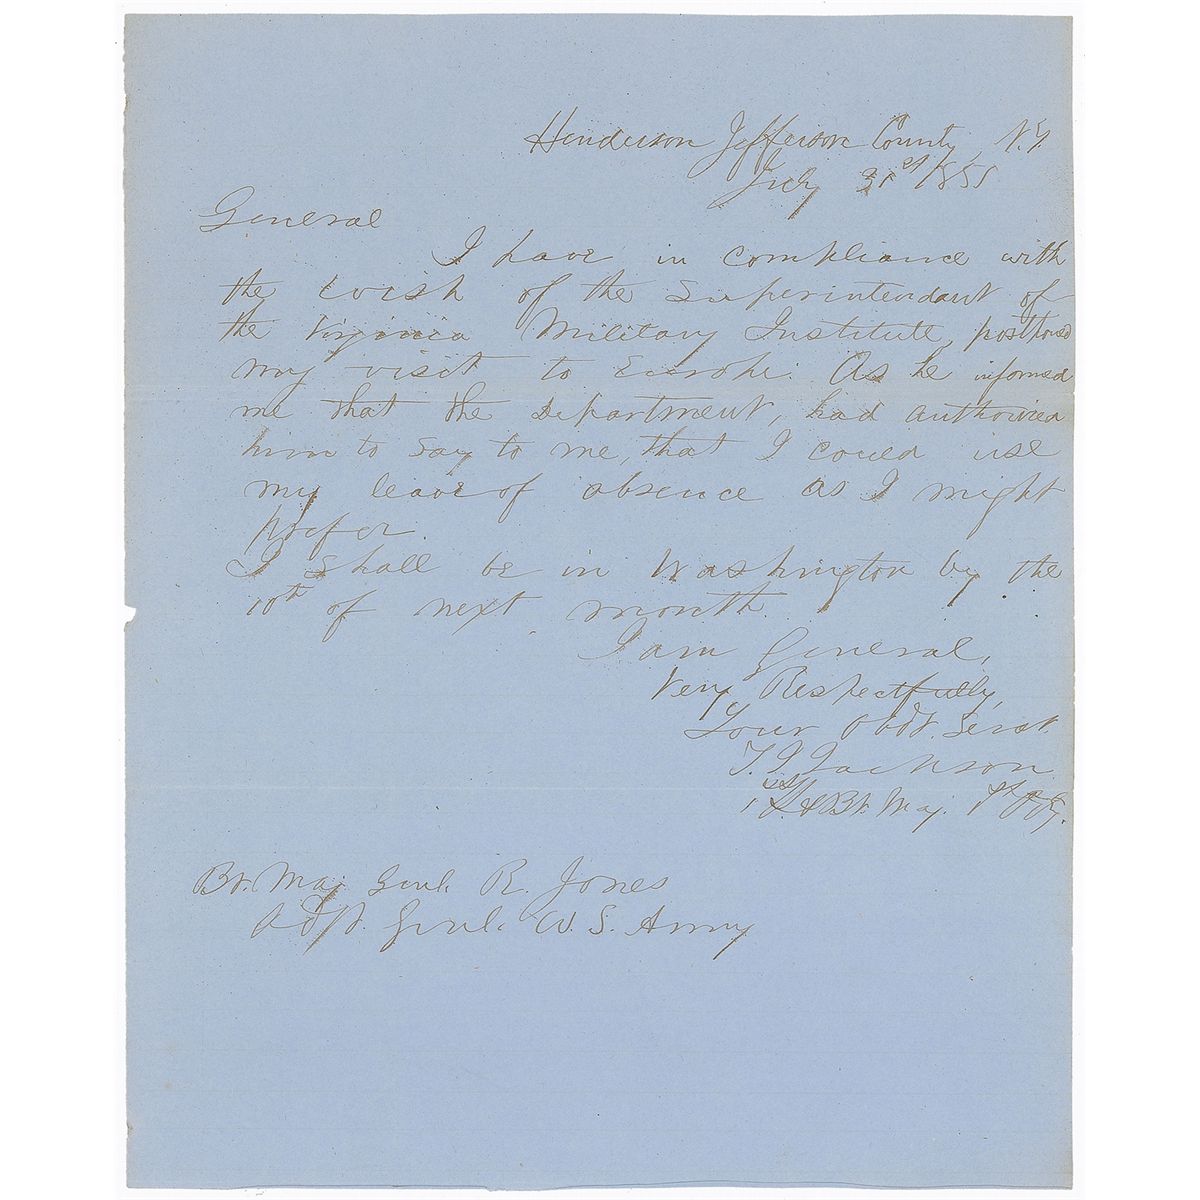 Henderson Jefferson County, N.Y.
July 31st 1851
General
I have in compliance with
the wish of the Superintendant of
the Virginia Military Institute, postponed
my visit to Europe. As he informed
me that the Department, had authorized
him to say to me, that I could use
my leave of absence as I might
prefer.
I shall be in Washington by the
10th of next month.
I am General,
Very Respectfully,
Your Obdt. Servt.
T. J. Jackson
1st Lt & Bt. Maj. 1st Arty.
Bt. Maj Genl. R. Jones
Adjt. Genl. U. S. Army